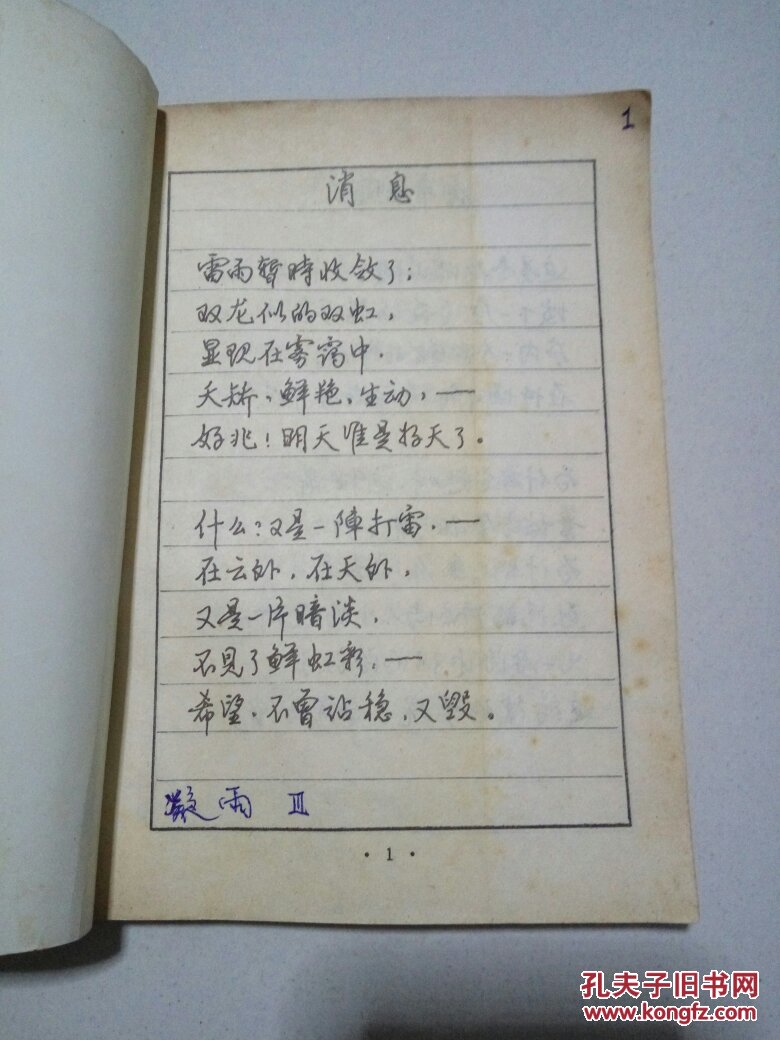 1
消息
雷雨暫時收敛了；
双龙似的双虹，
显现在雾霭中，
夭矫、鲜艳、生动，——
好兆！明天准是好天了。
什么？又是一陣打雷，——
在云外，在天外，
又是一片暗淡，
不見了鲜虹彩，——
希望，不曾站稳，又毁。
雨 Ⅲ
·1·
孔夫子旧书网
www.kongfz.com